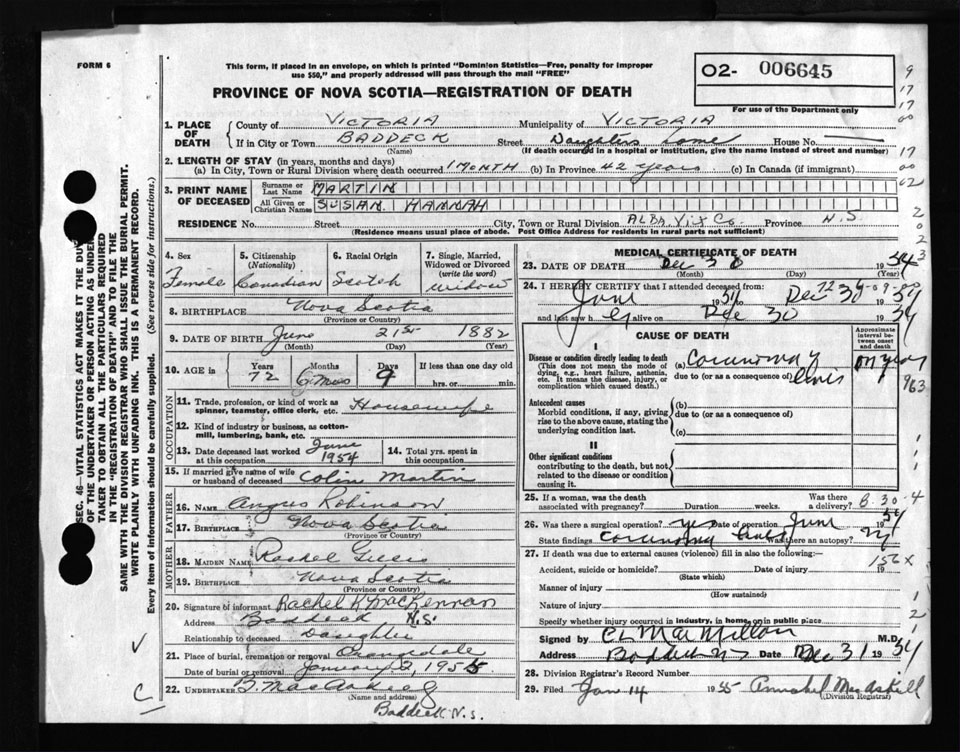 FORM 6
This form, if placed in an envelope, on which is printed "Dominion Statistics—Free, penalty for improper
use $50," and properly addressed will pass through the mail "FREE"
PROVINCE OF NOVA SCOTIA—REGISTRATION OF DEATH
02- 006645
For use of the Department only
SEC. 46—VITAL STATISTICS ACT MAKES IT THE DUTY
OF THE UNDERTAKER OR PERSON ACTING AS UNDER-
TAKER TO OBTAIN ALL THE PARTICULARS REQUIRED
IN THE "REGISTRATION OF DEATH" AND TO FILE THE
SAME WITH THE DIVISION REGISTRAR WHO SHALL ISSUE THE BURIAL PERMIT.
WRITE PLAINLY WITH UNFADING INK. THIS IS A PERMANENT RECORD.
Every item of information should be carefully supplied. (See reverse side for instructions.)
1. PLACE OF DEATH County of VICTORIA Municipality of VICTORIA
If in City or Town BADDECK Street House No.
(Name) (If death occurred in a hospital or institution, give the name instead of street and number)
2. LENGTH OF STAY (in years, months and days)
(a) In City, Town or Rural Division where death occurred 1 MONTH (b) In Province 42 years (c) In Canada (if immigrant)
3. PRINT NAME OF DECEASED Surname or Last Name MARTIN
All Given or Christian Names SUSAN HANNAH
RESIDENCE No. Street City, Town or Rural Division ALBA, Vix Co. Province N.S.
(Residence means usual place of abode. Post Office Address for residents in rural parts not sufficient)
4. Sex Female
5. Citizenship (Nationality) Canadian
6. Racial Origin Scotch
7. Single, Married, Widowed or Divorced (write the word) widow
8. BIRTHPLACE Nova Scotia
(Province or Country)
9. DATE OF BIRTH June 21st 1882
(Month) (Day) (Year)
10. AGE in Years 72 Months 6 Days 9 If less than one day old hrs. or min.
OCCUPATION
11. Trade, profession, or kind of work as
spinner, teamster, office clerk, etc. Housewife
12. Kind of industry or business, as cotton-
mill, lumbering, bank, etc.
13. Date deceased last worked at this occupation June 1954
14. Total yrs. spent in this occupation
15. If married give name of wife or husband of deceased Colin Martin
FATHER
16. Name Angus Robinson
17. Birthplace Nova Scotia
(Province or Country)
MOTHER
18. Maiden Name Rachel
19. Birthplace Nova Scotia
(Province or Country)
20. Signature of informant Rachel K MacLennan
Address Baddeck N.S.
Relationship to deceased Daughter
21. Place of burial, cremation or removal Orangedale
Date of burial or removal January 2, 1955
22. UNDERTAKER
(Name and address)
Baddeck N.S.
MEDICAL CERTIFICATE OF DEATH
23. DATE OF DEATH Dec 30 1954
(Month) (Day) (Year)
24. I HEREBY CERTIFY that I attended deceased from:
June 1954 Dec 30 1954
and last saw her alive on Dec 30 1954
CAUSE OF DEATH
Approximate interval between onset and death
I
Disease or condition directly leading to death
(This does not mean the mode of dying, e.g., heart failure, asthenia, etc. It means the disease, injury, or complication which caused death.)
(a)
due to (or as a consequence of)
Antecedent causes
Morbid conditions, if any, giving rise to the above cause, stating the underlying condition last.
(b)
due to (or as a consequence of)
(c)
II
Other significant conditions
contributing to the death, but not related to the disease or condition causing it.
25. If a woman, was the death associated with pregnancy? Duration weeks. Was there a delivery?
26. Was there a surgical operation? yes Date of operation June 1954
State findings Was there an autopsy?
27. If death was due to external causes (violence) fill in also the following:—
Accident, suicide or homicide? Date of injury 19
(State which)
Manner of injury
(How sustained)
Nature of injury
Specify whether injury occurred in industry, in home, or in public place
Signed by C L MacMillan M.D.
Address Baddeck NS Date Dec 31 1954
28. Division Registrar's Record Number
29. Filed Jan 14 1955 MacAskill
(Division Registrar)